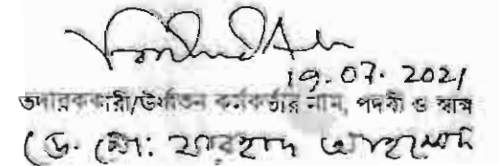 19.07.2021
তদারককারী/উর্ধতন কর্মকর্তার নাম, পদবী ও স্বাক্ষ
(ড. মো: ফরহাদ আহমেদ